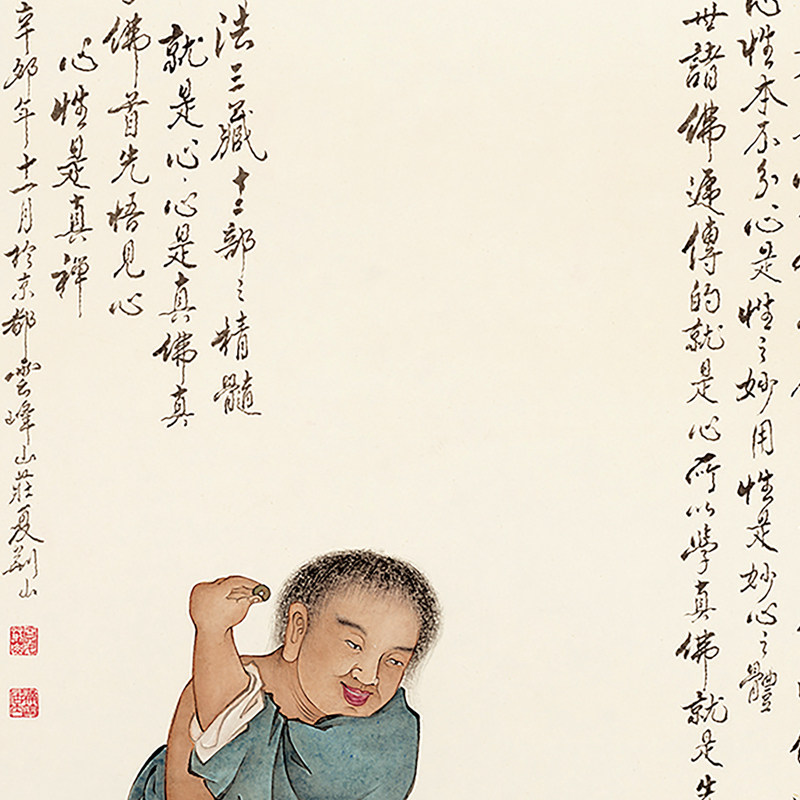 心性本不分心是性之妙用性是妙心之體
世諸佛遞傳的就是心所以學真佛就是先
法三藏十二部之精髓
就是心心是真佛真
佛首先悟見心
心性是真禪
辛卯年十一月於京都雲峰山莊夏荊山